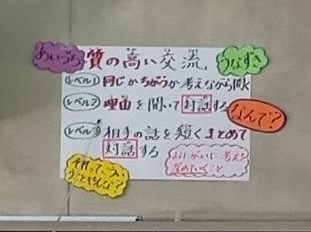 あいづち
質の高い交流
うなずき
レベル1 同じかちがうか考えながら聞く
レベル2 理由を聞いて対話する
なんで?
レベル3 相手の話を短くまとめて
対話する
それって、つい
うことやんな?
おたがいに考えを